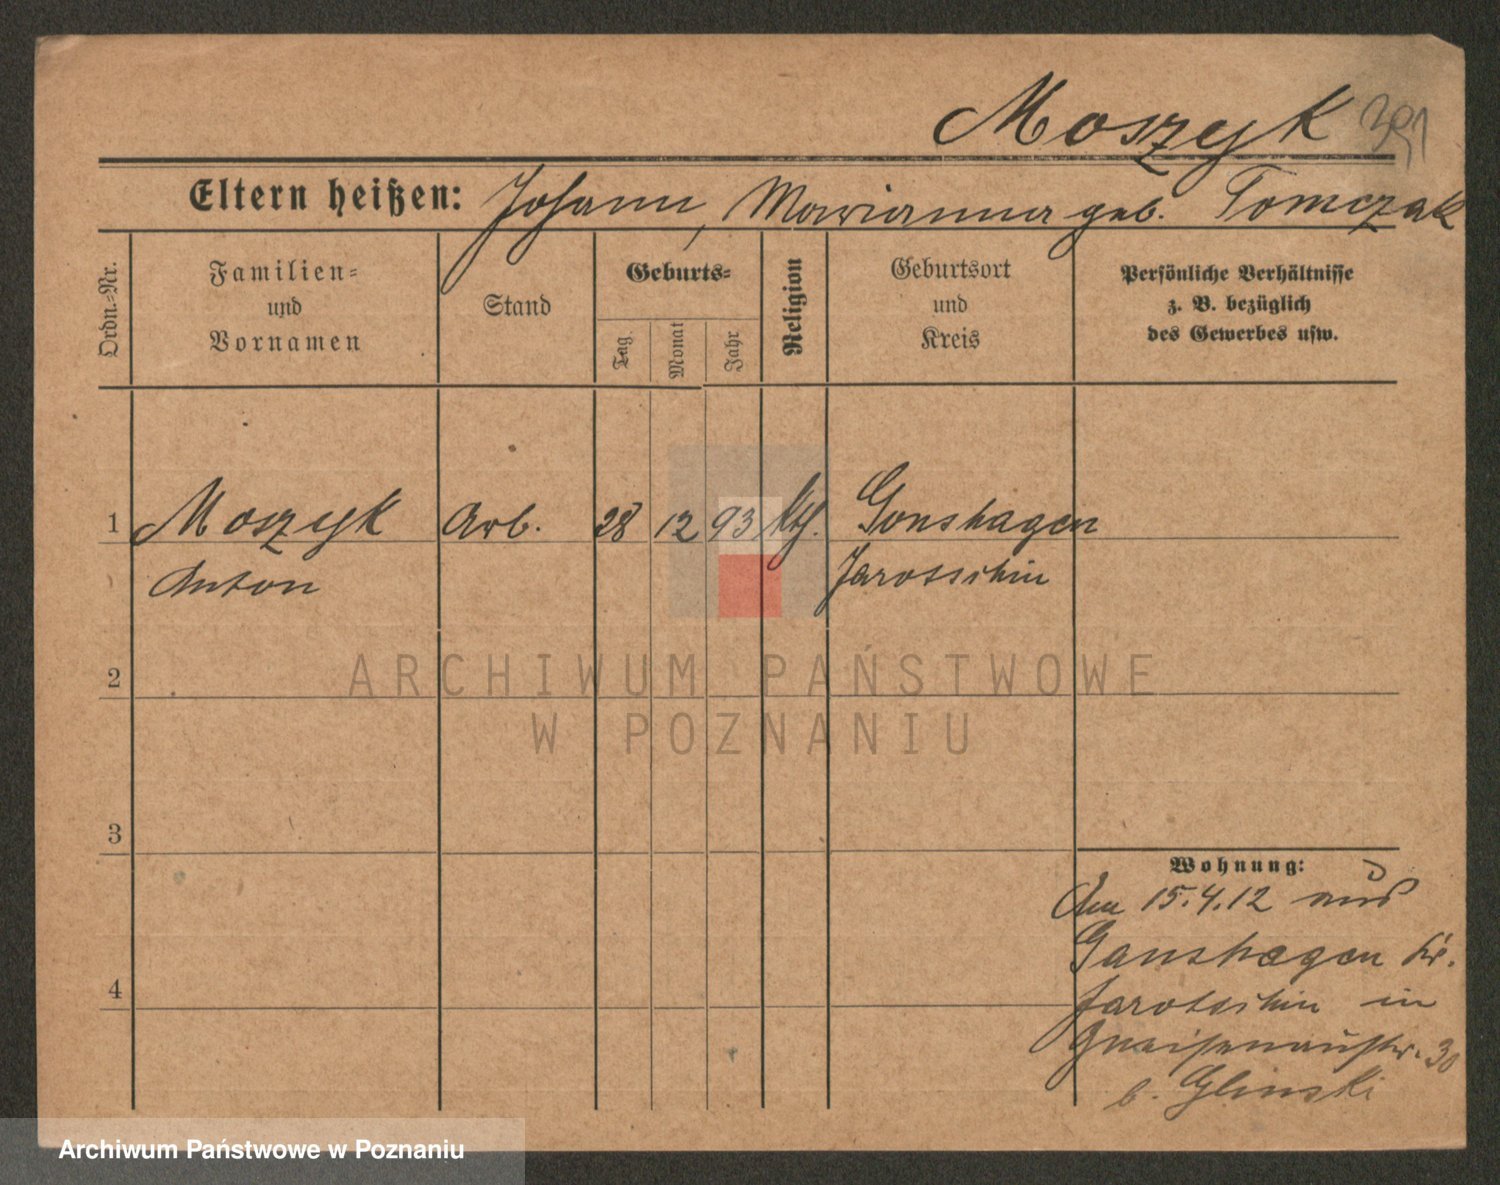 Moszyk 391
Eltern heißen: Johann, Marianna geb. Tomczak
Ordn.-Nr.
Familien-
und
Vornamen
Stand
Geburts-
Tag
Monat
Jahr
Religion
Geburtsort
und
Kreis
Persönliche Verhältnisse
z. B. bezüglich
des Gewerbes usw.
1 Moszyk Arb. 28 12 93 kth. Gonshagen
Anton Jarotschin
2
ARCHIWUM PAŃSTWOWE
W POZNANIU
3
Wohnung:
Am 15.4.12 aus
Ganshagen Kr.
4
Jarotschin in
Gneisenaustr. 30
b. Glinski
Archiwum Państwowe w Poznaniu